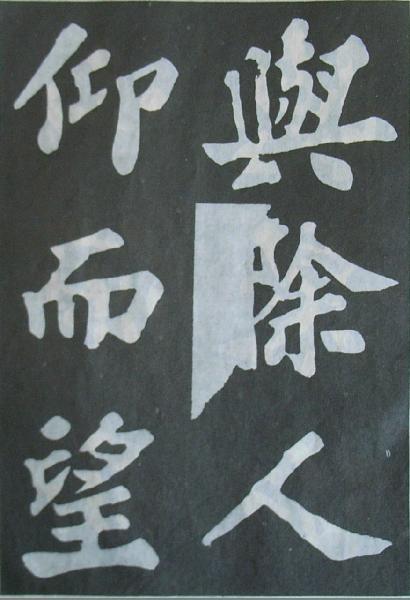 與滁人
仰而望